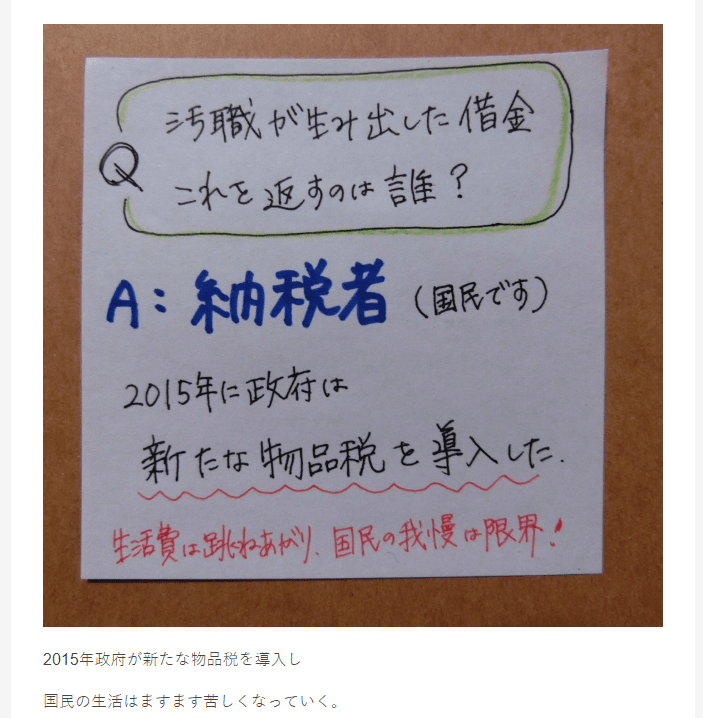 Q
汚職が生み出した借金
これを返すのは誰?
A:納税者(国民です)
2015年に政府は
新たな物品税を導入した.
生活費は跳ねあがり、国民の我慢は限界!
2015年政府が新たな物品税を導入し
国民の生活はますます苦しくなっていく。